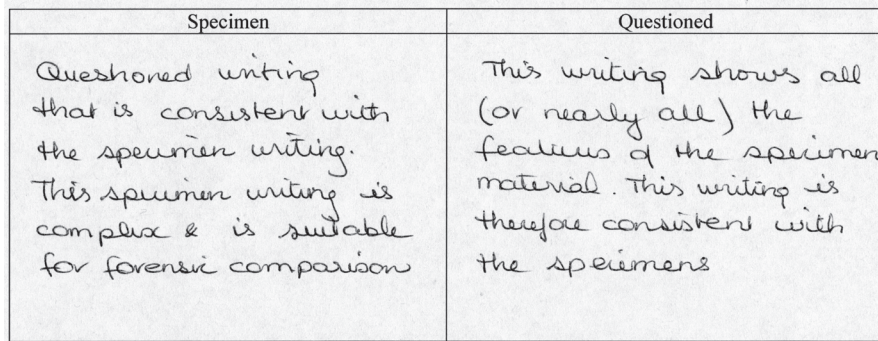 Specimen
Questioned writing
that is consistent with
the specimen writing.
This specimen writing is
complex & is suitable
for forensic comparison
Questioned
This writing shows all
(or nearly all) the
features of the specimen
material. This writing is
therefore consistent with
the specimens